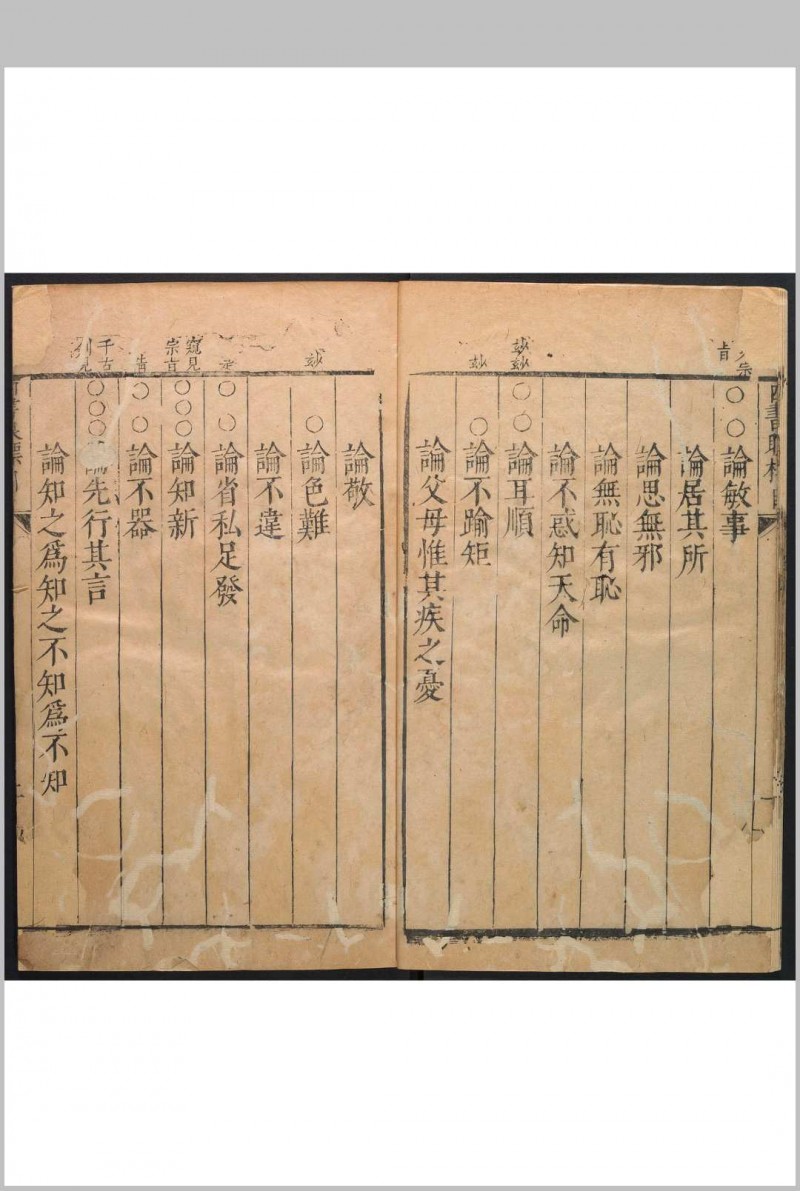 宗
旨
○○論敏事
論居其所
論思無邪
論無恥有恥
論不惑知天命
玅玅
○○論耳順
玅
○論不踰矩
論父母惟其疾之憂
論敬
玅
○論色難
論不違
○○論省私足發
窺見
宗旨
○○○論知新
○○論不器
千古
○○○論先行其言
論知之爲知之不知爲不知